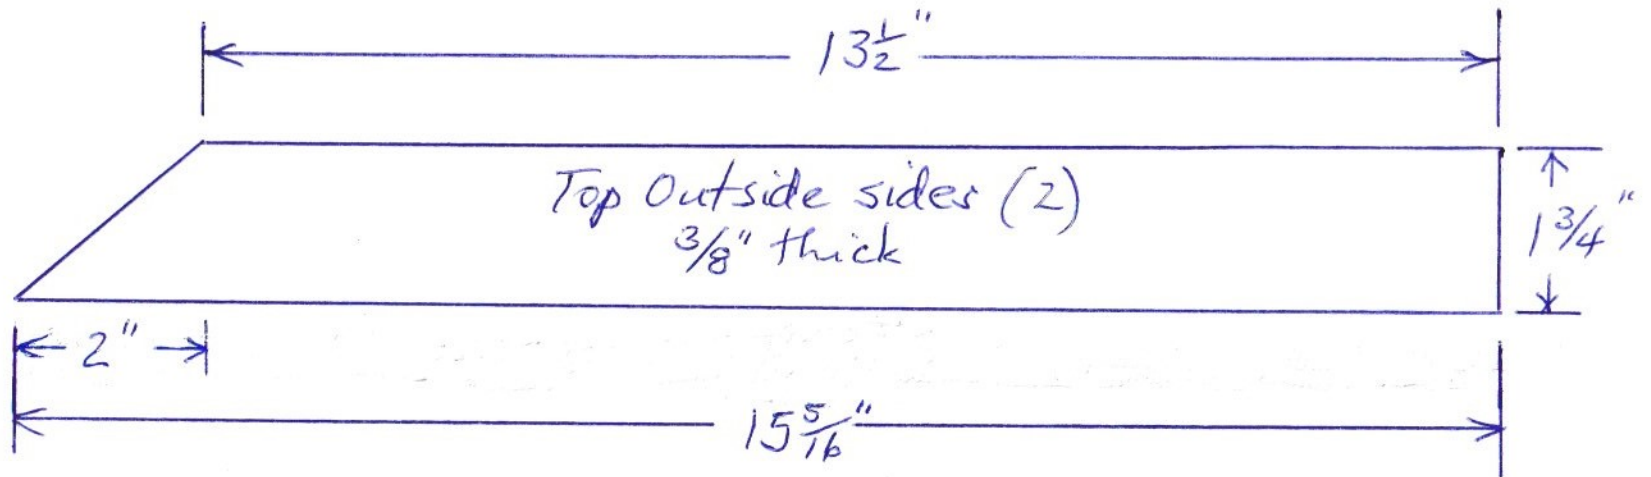 13 1/2"
Top Outside sides (2)
3/8" thick
1 3/4"
2"
15 5/16"